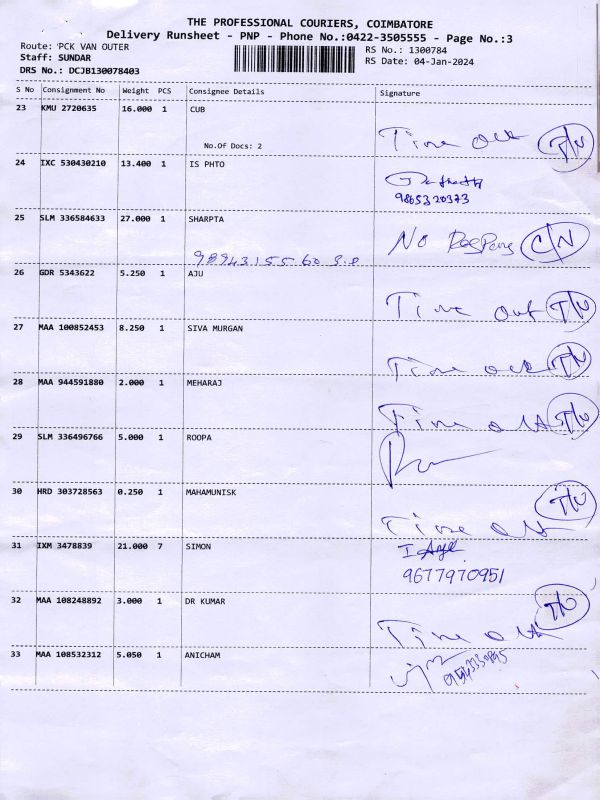 THE PROFESSIONAL COURIERS, COIMBATORE
Delivery Runsheet - PNP - Phone No.:0422-3505555 - Page No.:3
Route: PCK VAN OUTER RS No.: 1300784
Staff: SUNDAR RS Date: 04-Jan-2024
DRS No.: DCJB130078403
S No Consignment No Weight PCS Consignee Details Signature
23 KMU 2720635 16.000 1 CUB
No.Of Docs: 2 Time Out T/O
24 IXC 530430210 13.400 1 IS PHTO
9865320373
25 SLM 336584633 27.000 1 SHARPTA
No C/N
26 GDR 5343622 5.250 1 AJU
Time Out T/O
27 MAA 100852453 8.250 1 SIVA MURGAN
Time Out T/O
28 MAA 944591880 2.000 1 MEHARAJ
Time Out T/O
29 SLM 336496766 5.000 1 ROOPA
30 HRD 303728563 0.250 1 MAHAMUNISK
Time Out T/O
31 IXM 3478839 21.000 7 SIMON
9677970951
32 MAA 108248892 3.000 1 DR KUMAR
Time Out T/O
33 MAA 108532312 5.050 1 ANICHAM